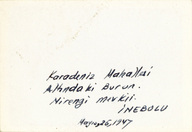 Karadeniz Mahallesi
Altındaki Burun.
Mirengi mevkii.
İNEBOLU
1947